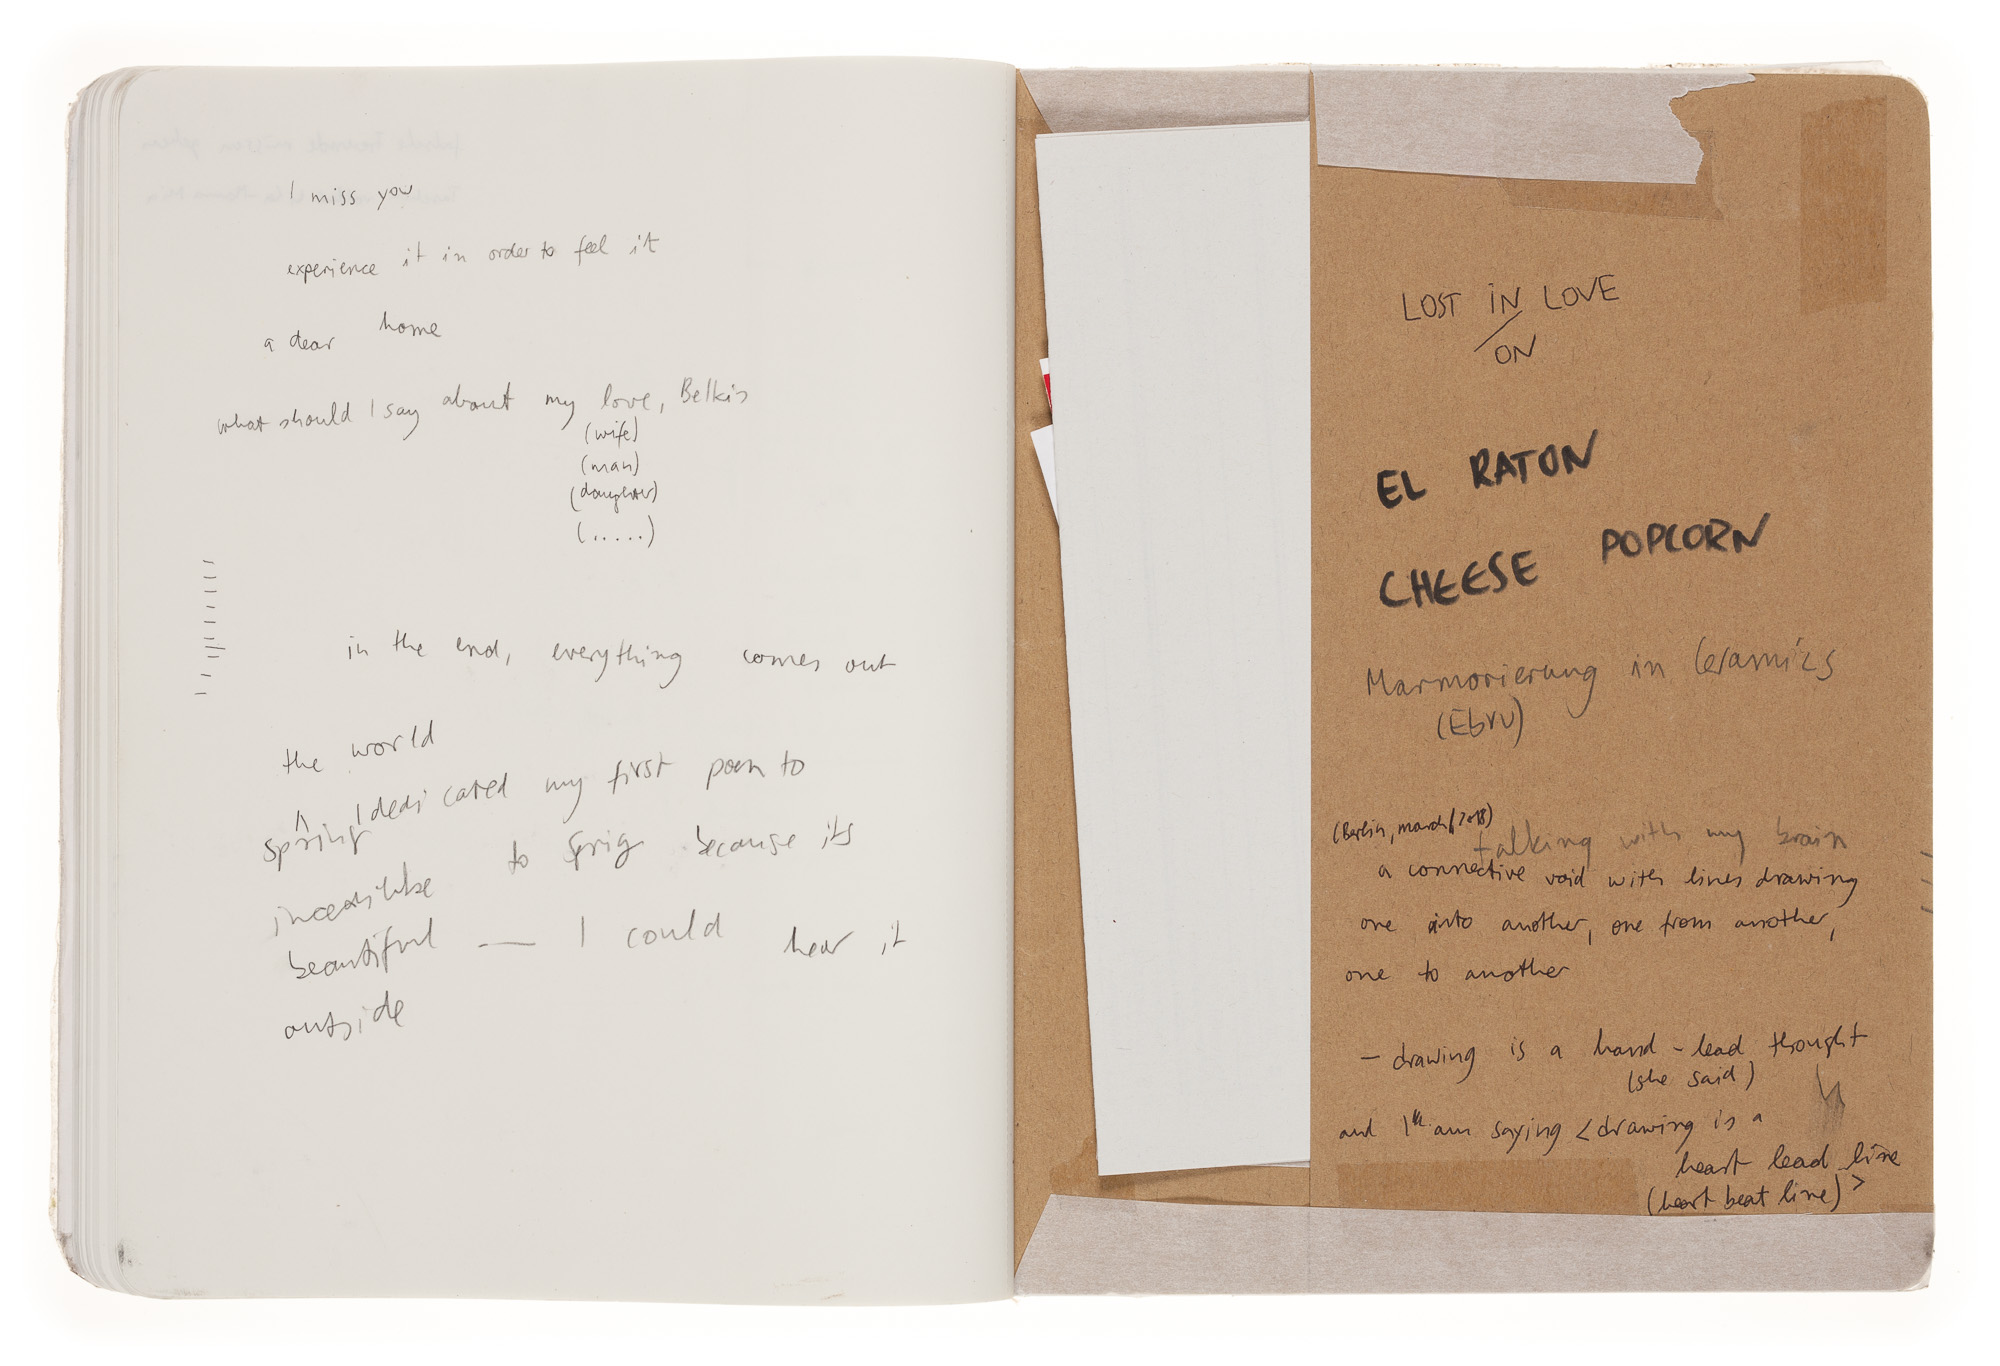 I miss you
experience it in order to feel it
a dear home
what should I say about my love, Belkis
(wife)
(man)
(daughter)
(.....)
in the end, everything comes out
the world
I dedicated my first poem to
spring
to sprig because its
beautiful — I could hear it
outside
LOST IN LOVE
ON
EL RATON
CHEESE POPCORN
Marmorierung in Ceramics
(Ebru)
(Berlin, march/2018)
talking with my brain
a connective void with lines drawing
one into another, one from another,
one to another
— drawing is a hand-lead thought
(she said)
and I am saying <drawing is a
heart lead line
(heart beat line)>